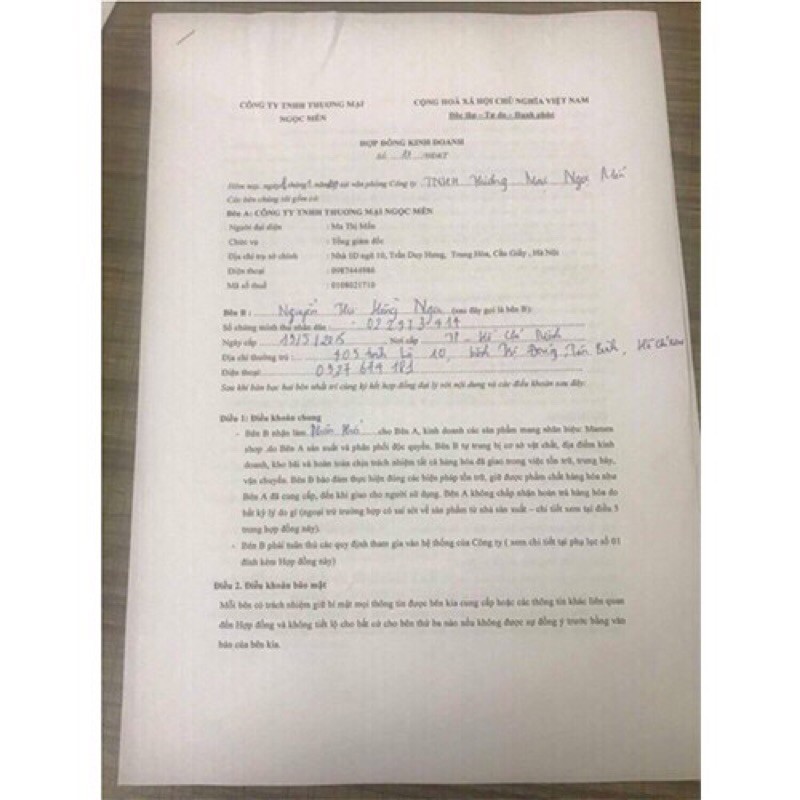 CÔNG TY TNHH THƯƠNG MẠI
NGỌC MẾN
CỘNG HOÀ XÃ HỘI CHỦ NGHĨA VIỆT NAM
Độc lập – Tự do – Hạnh phúc
HỢP ĐỒNG KINH DOANH
Số
Hôm nay, ngày tháng năm tại văn phòng Công ty TNHH Thương Mại Ngọc Mến
Các bên chúng tôi gồm có:
Bên A: CÔNG TY TNHH THƯƠNG MẠI NGỌC MẾN
Người đại diện : Ma Thị Mến
Chức vụ : Tổng giám đốc
Địa chỉ trụ sở chính : Nhà 8D ngõ 10, Trần Duy Hưng, Trung Hòa, Cầu Giấy, Hà Nội
Điện thoại : 0987444986
Mã số thuế : 0108021710
Bên B : Nguyễn Thị Hồng Nga (sau đây gọi là bên B):
Số chứng minh thư nhân dân :
Ngày cấp Nơi cấp TP Hồ Chí Minh
Địa chỉ thường trú : 10,
Điện thoại:
Sau khi bàn bạc hai bên nhất trí cùng ký kết hợp đồng đại lý với nội dung và các điều khoản sau đây:
Điều 1: Điều khoản chung
- Bên B nhận làm cho Bên A, kinh doanh các sản phẩm mang nhãn hiệu: Mamen
shop .do Bên A sản xuất và phân phối độc quyền. Bên B tự trang bị cơ sở vật chất, địa điểm kinh
doanh, kho bãi và hoàn toàn chịu trách nhiệm tất cả hàng hóa đã giao trong việc tồn trữ, trưng bày,
vận chuyển. Bên B bảo đảm thực hiện đúng các biện pháp tồn trữ, giữ được phẩm chất hàng hóa như
Bên A đã cung cấp, đến khi giao cho người sử dụng. Bên A không chấp nhận hoàn trả hàng hóa do
bất kỳ lý do gì (ngoại trừ trường hợp có sai sót về sản phẩm từ nhà sản xuất – chi tiết xem tại điều 5
trong hợp đồng này).
- Bên B phải tuân thủ các quy định tham gia vào hệ thống của Công ty ( xem chi tiết tại phụ lục số 01
đính kèm Hợp đồng này)
Điều 2. Điều khoản bảo mật
Mỗi bên có trách nhiệm giữ bí mật mọi thông tin được bên kia cung cấp hoặc các thông tin khác liên quan
đến Hợp đồng và không tiết lộ cho bất cứ cho bên thứ ba nào nếu không được sự đồng ý trước bằng văn
bản của bên kia.